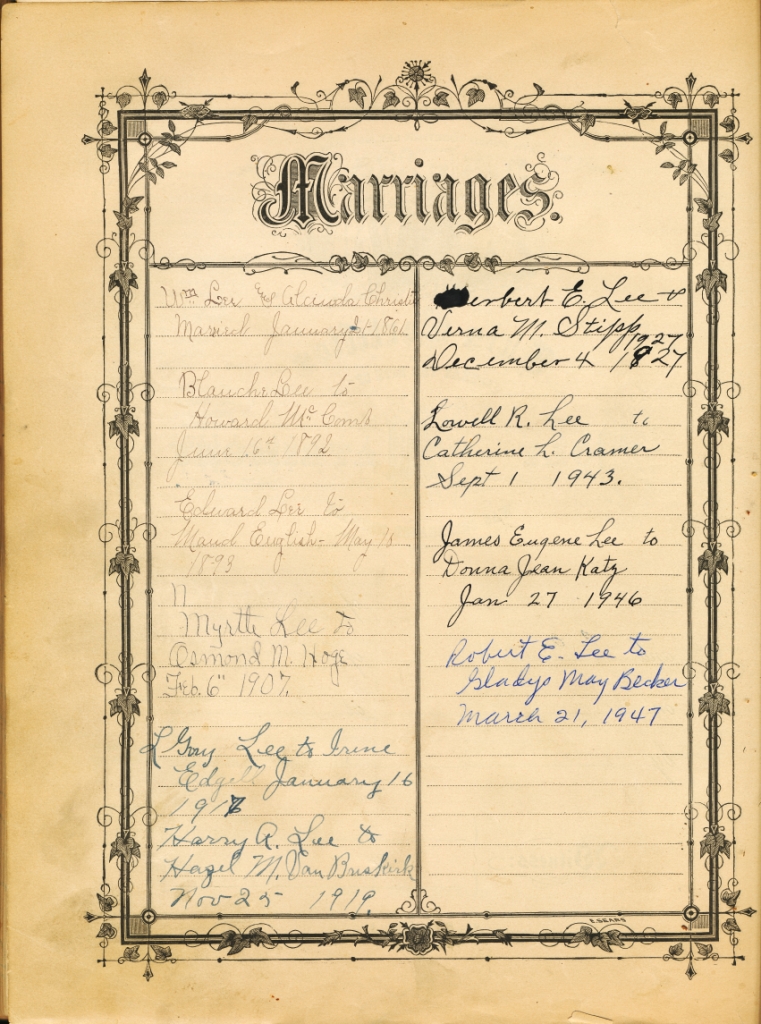 Marriages.
Wm Lee & Alcinda Christ
Married January 21 1861
Blanche Lee to
Howard Mc Comb
June 16th 1892
Edward Lee to
Maud English - May 18
1893
Myrtle Lee To
Osmond M. Hoge
Feb. 6" 1907.
L Guy Lee to Irene
Edgell January 16
1917
Harry A. Lee to
Hazel M. Van Buskirk
Nov 25 1919.
erbert E. Lee to
Verna M. Stipp
1927
December 4 1827
Lowell R. Lee to
Catherine L. Cramer
Sept 1 1943.
James Eugene Lee to
Donna Jean Katz
Jan 27 1946
Robert E. Lee to
Gladys May Becker
March 21, 1947
E. SEARS